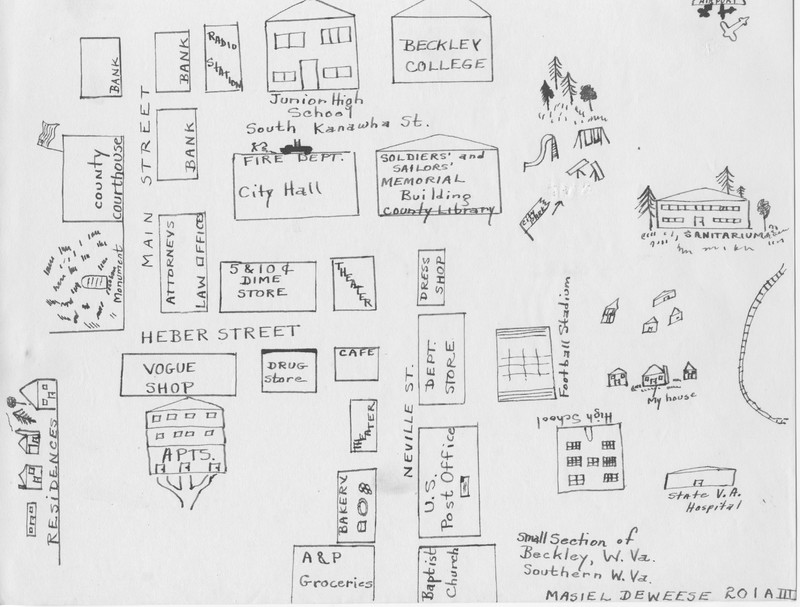 AIRPORT
BANK
BANK
RADIO
STATION
Junior High
School
BECKLEY
COLLEGE
MAIN STREET
South Kanawha St.
COUNTY
courthouse
BANK
FIRE DEPT.
City Hall
SOLDIERS' and
SAILORS'
MEMORIAL
Building
County Library
SANITARIUM
Monument
ATTORNEYS
LAW OFFICE
5 & 10 ¢
DIME
STORE
THEATER
DRESS
SHOP
HEBER STREET
VOGUE
SHOP
DRUG
Store
CAFE
NEVILLE ST.
DEPT.
STORE
Football Stadium
My house
High School
RESIDENCES
APTS.
THEATER
BAKERY
U.S.
Post Office
State V.A.
Hospital
A & P
Groceries
Baptist
Church
Small Section of
Beckley, W. Va.
Southern W. Va.
MASIEL DEWEESE 201A III